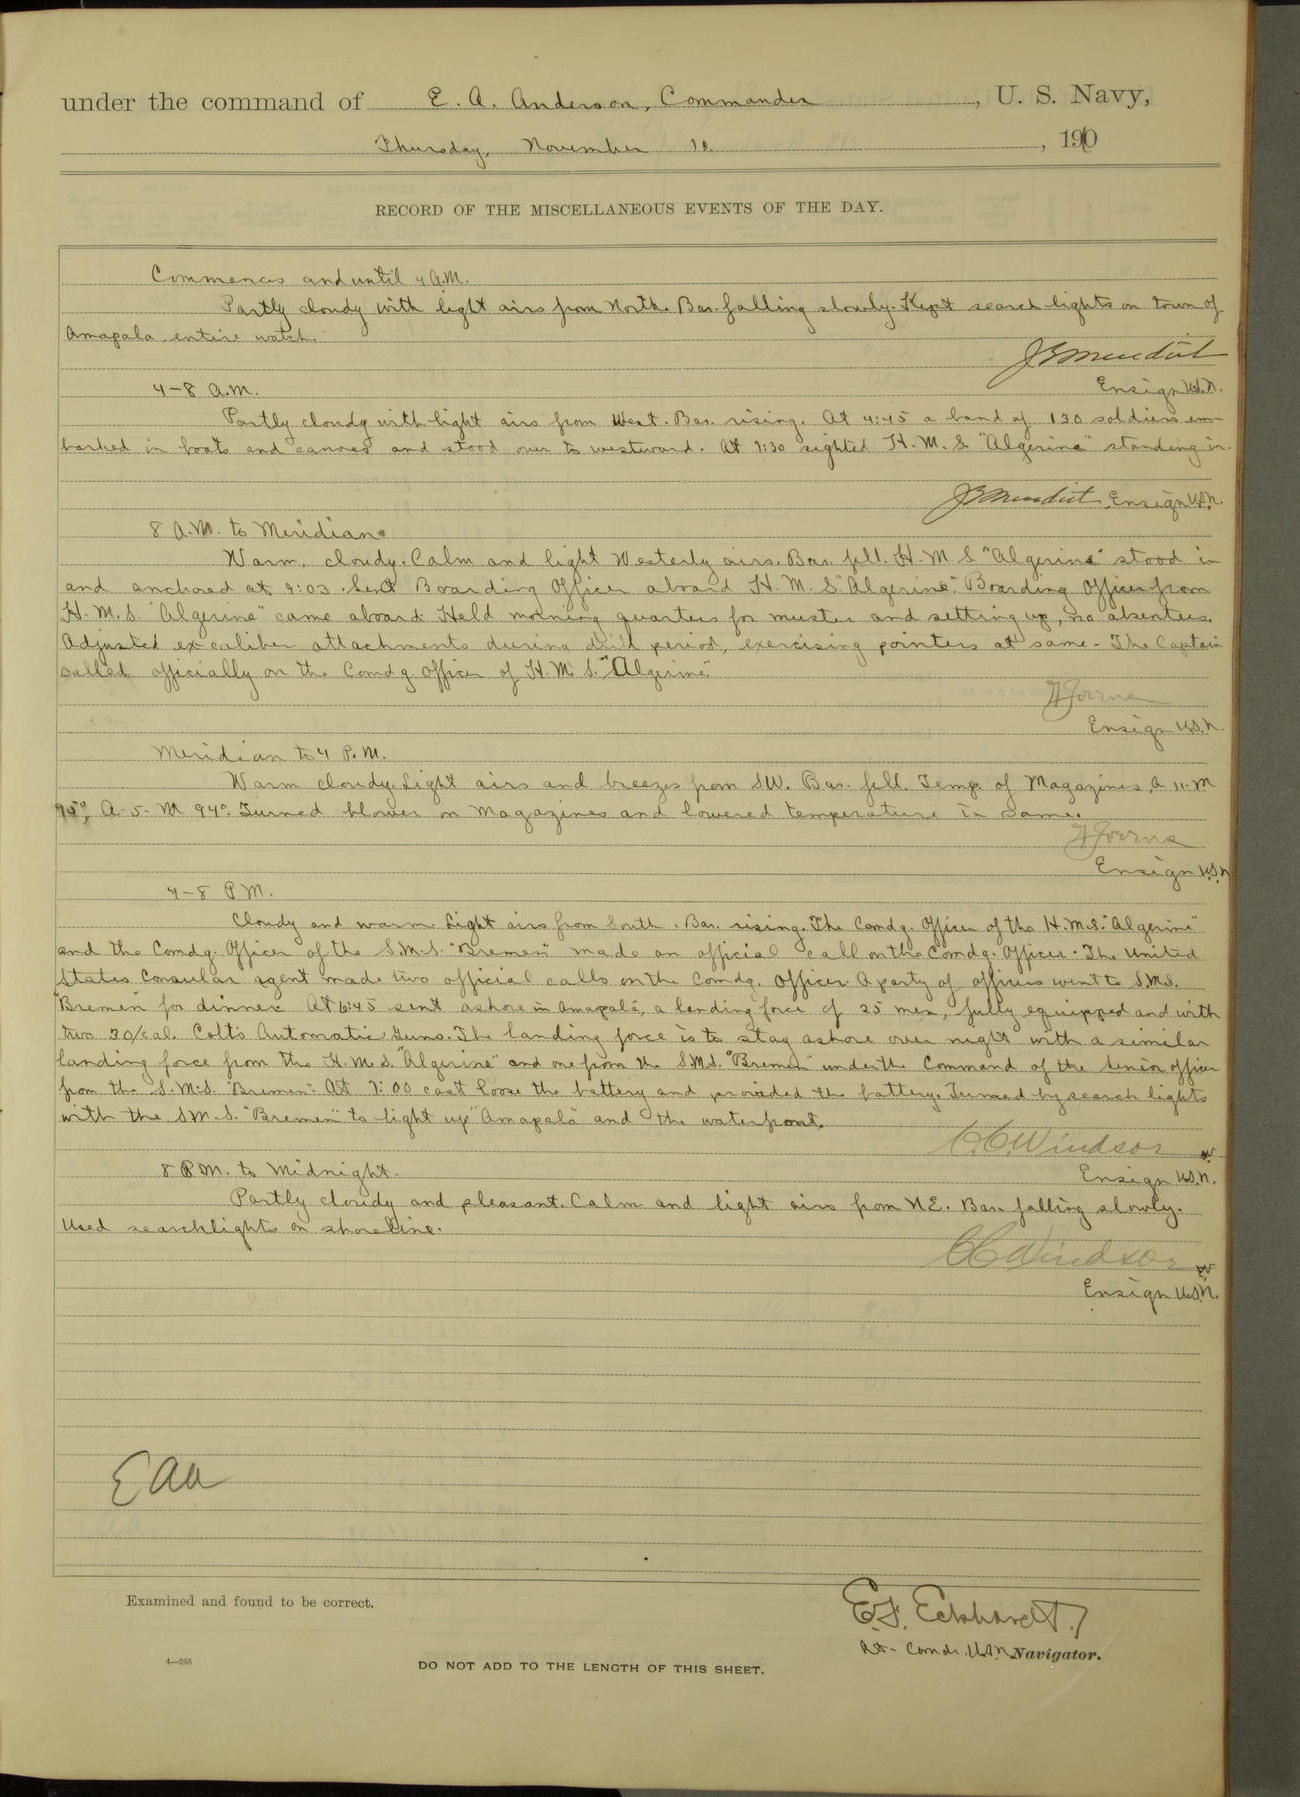 under the command of E. A. Anderson, Commander, U. S. Navy,
Thursday, November 10, 1910
RECORD OF THE MISCELLANEOUS EVENTS OF THE DAY.
Commences and until 4 A.M.
Partly cloudy with light airs from North. Bar. falling slowly. Kept search lights on town of
Amapala entire watch.
Ensign U.S.N.
4-8 A.M.
Partly cloudy with light airs from West. Bar. rising. At 4:45 a band of 130 soldiers em-
barked in boats and canoes and stood over to westward. At 7:30 sighted H. M. S. "Algerine" standing in.
Ensign U.S.N.
8 A.M. to Meridian.
Warm, cloudy. Calm and light Westerly airs. Bar. fell. H. M. S "Algerine" stood in
and anchored at 9:03. Sent Boarding Officer aboard H. M. S. "Algerine". Boarding Officer from
H. M. S. "Algerine" came aboard. Held morning quarters for muster and setting up, no absentees.
Adjusted ex-caliber attachments during drill period, exercising pointers at same - The Captain
called officially on the Comdg Officer of H. M. S. "Algerine"
Ensign U.S.N.
Meridian to 4 P. M.
Warm cloudy. Light airs and breezes from SW. Bar. fell. Temp. of Magazines, A-11-M
95°, A-5-M 94°. Turned blower on Magazines and lowered temperature in same.
Ensign U.S.N
4-8 P M.
Cloudy and warm. Light airs from South. Bar. rising. The Comdg. Officer of the H.M.S. "Algerine"
and the Comdg. Officer of the S.M.S. "Bremen" made an official call on the Comdg. Officer. The United
States Consular agent made two official calls on the Comdg. Officer. A party of officers went to S.M.S.
"Bremen" for dinner. At 6:45 sent ashore in Amapala, a landing force of 25 men, fully equipped and with
two 30/cal. Colt's Automatic Guns. The landing force is to stay ashore over night with a similar
landing force from the H.M.S. "Algerine" and one from the S.M.S. "Bremen" under the Command of the Senior officer
from the S.M.S. "Bremen". At 7:00 cast loose the battery and provided the battery. Turned by search lights
with the S.M.S. "Bremen" to light up "Amapala" and the waterfront.
C.C. Windsor
Ensign U.S.N.
8 P.M. to Midnight.
Partly cloudy and pleasant. Calm and light airs from N.E. Bar. falling slowly.
Used searchlights on shoreline.
C.C. Windsor
Ensign U.S.N.
EAA
Examined and found to be correct.
E.F. Eckhardt
Lt-Comdr. U.S.N. Navigator.
4—265
DO NOT ADD TO THE LENGTH OF THIS SHEET.